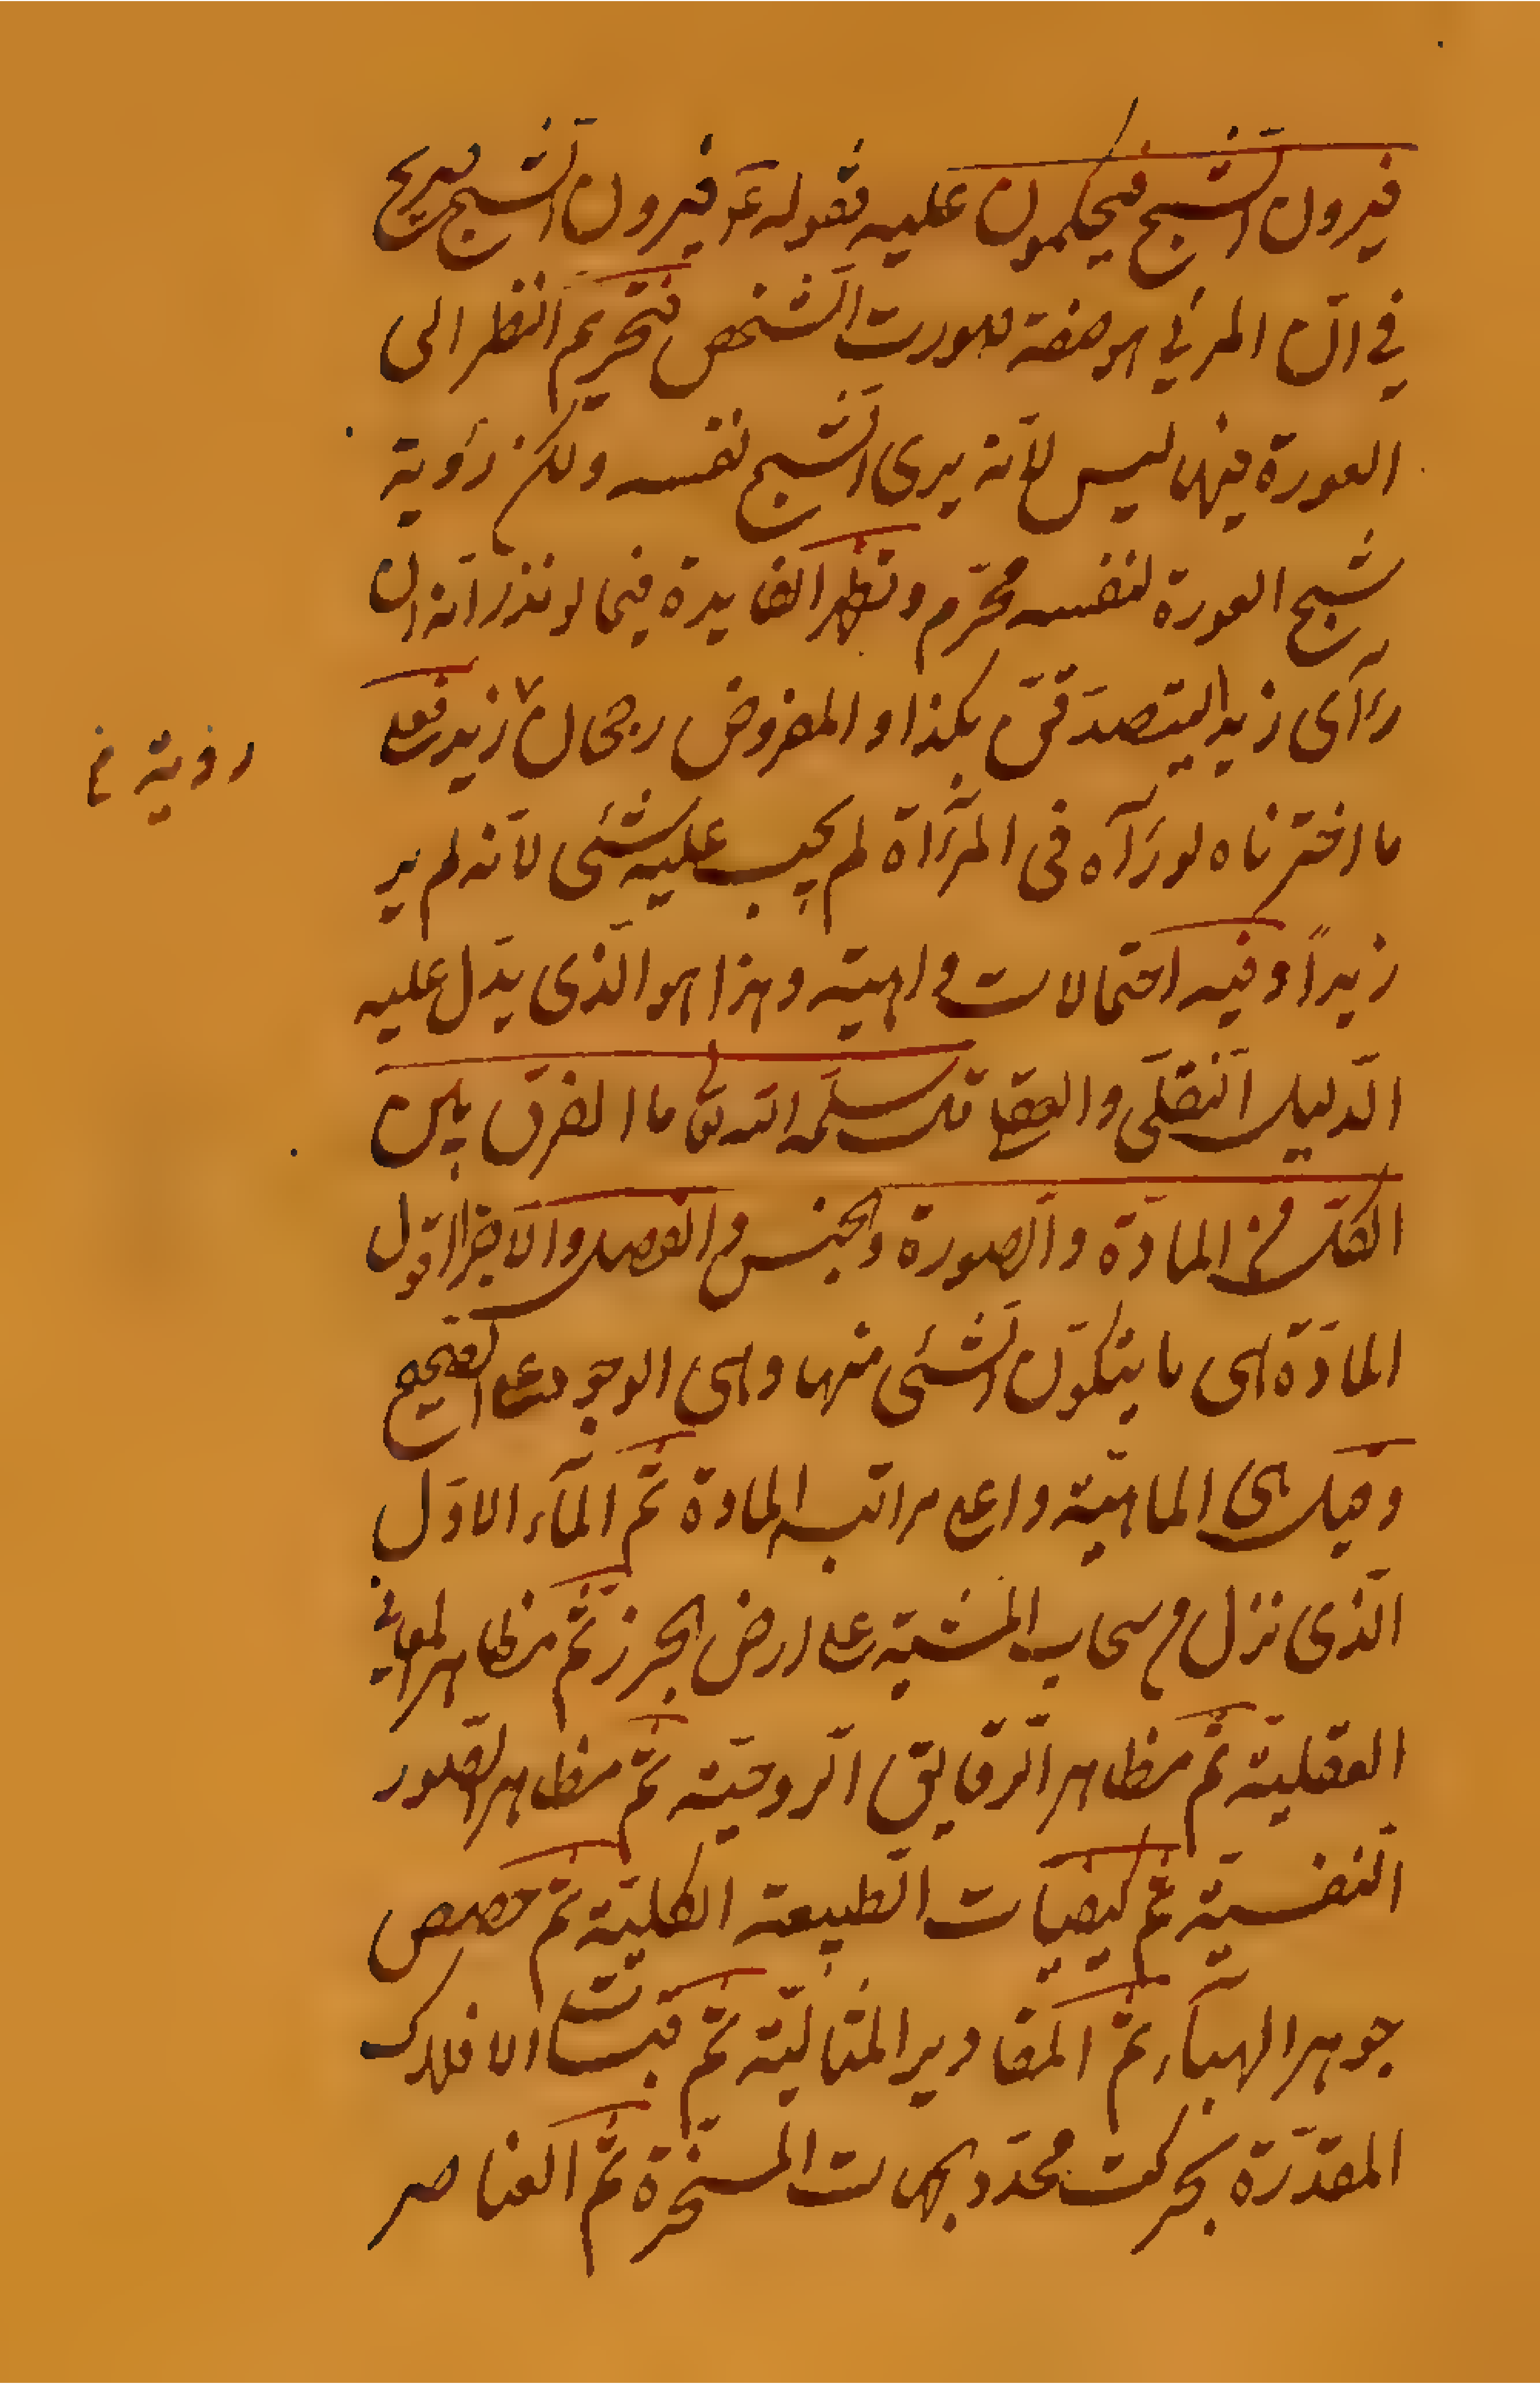 فيرون الشبح فيحكمون عليه فقوله ع فيرون الشبح صريح
في ان المرئي هو صفة صورت الشخص فتحريم النظر الى
العورة فيها ليس لانه يرى الشبح نفسه ولكن رؤية
شبح العورة لنفسه محرّم وتظهر الفايدة فيما لو نذر انه ان
رآى زيدا ليتصدقنّ بكذا والمفروض رجحان زيد فعلى
ما اخترناه لو رآه فى المرآاة لم يجب عليه شئى لانه لم ير
زيداً وفيه احتمالات واهية وهذا هو الذى يدل عليه
الدليل النقلى والعقلى قال سلمه الله تعا ما الفرق بين
الكل من المادة والصورة والجنس والفصل والاجزا اقول
المادة هى ما يتكون الشئى منها وهى الوجود على الصحيح
وقيل هى الماهية واعلى مراتب المادة ثم المآء الاول
الذى نزل من سحاب المشية على ارض الجرز ثم مظاهر المعاني
العقلية ثم مظاهر الرقايق الروحية ثم مظاهر الصور
النفسية ثم كيفيات الطبيعة الكلية ثم حصص
جوهر الهبآء ثم المقادير المثالية ثم قبسات الافلاك
المقدّرة بحركت محدّد بجهات المسخرة ثم العناصر
رؤية